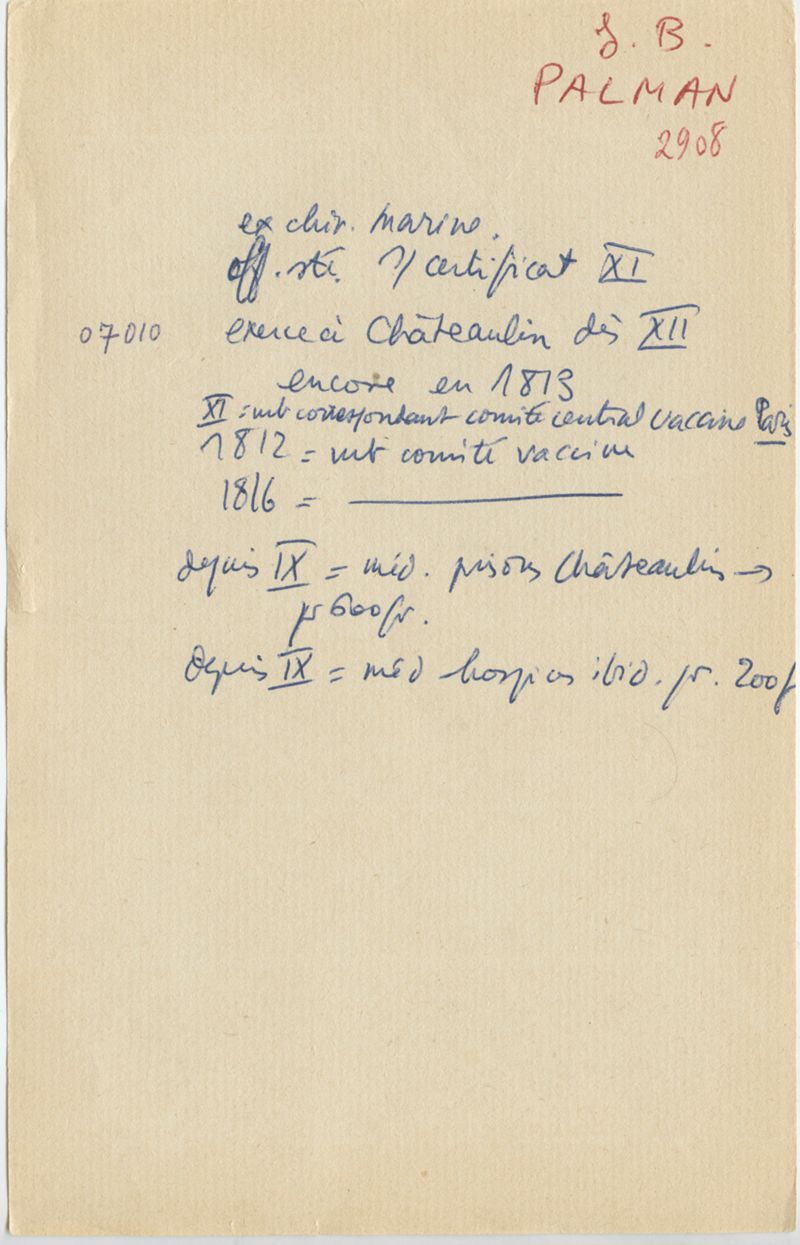 J. B.
PALMAN
2908
ex chir. marine.
off. sté. s/ certificat XI
07010 exerce à Châteaulin dès XII
encore en 1813
XI = mb correspondant comité central vaccine Paris
1812 = mb comité vaccine
1816 = ———
depuis IX = méd. prisons Châteaulin →
pr 600 fr.
depuis IX = méd hospices ibid. pr. 200 f